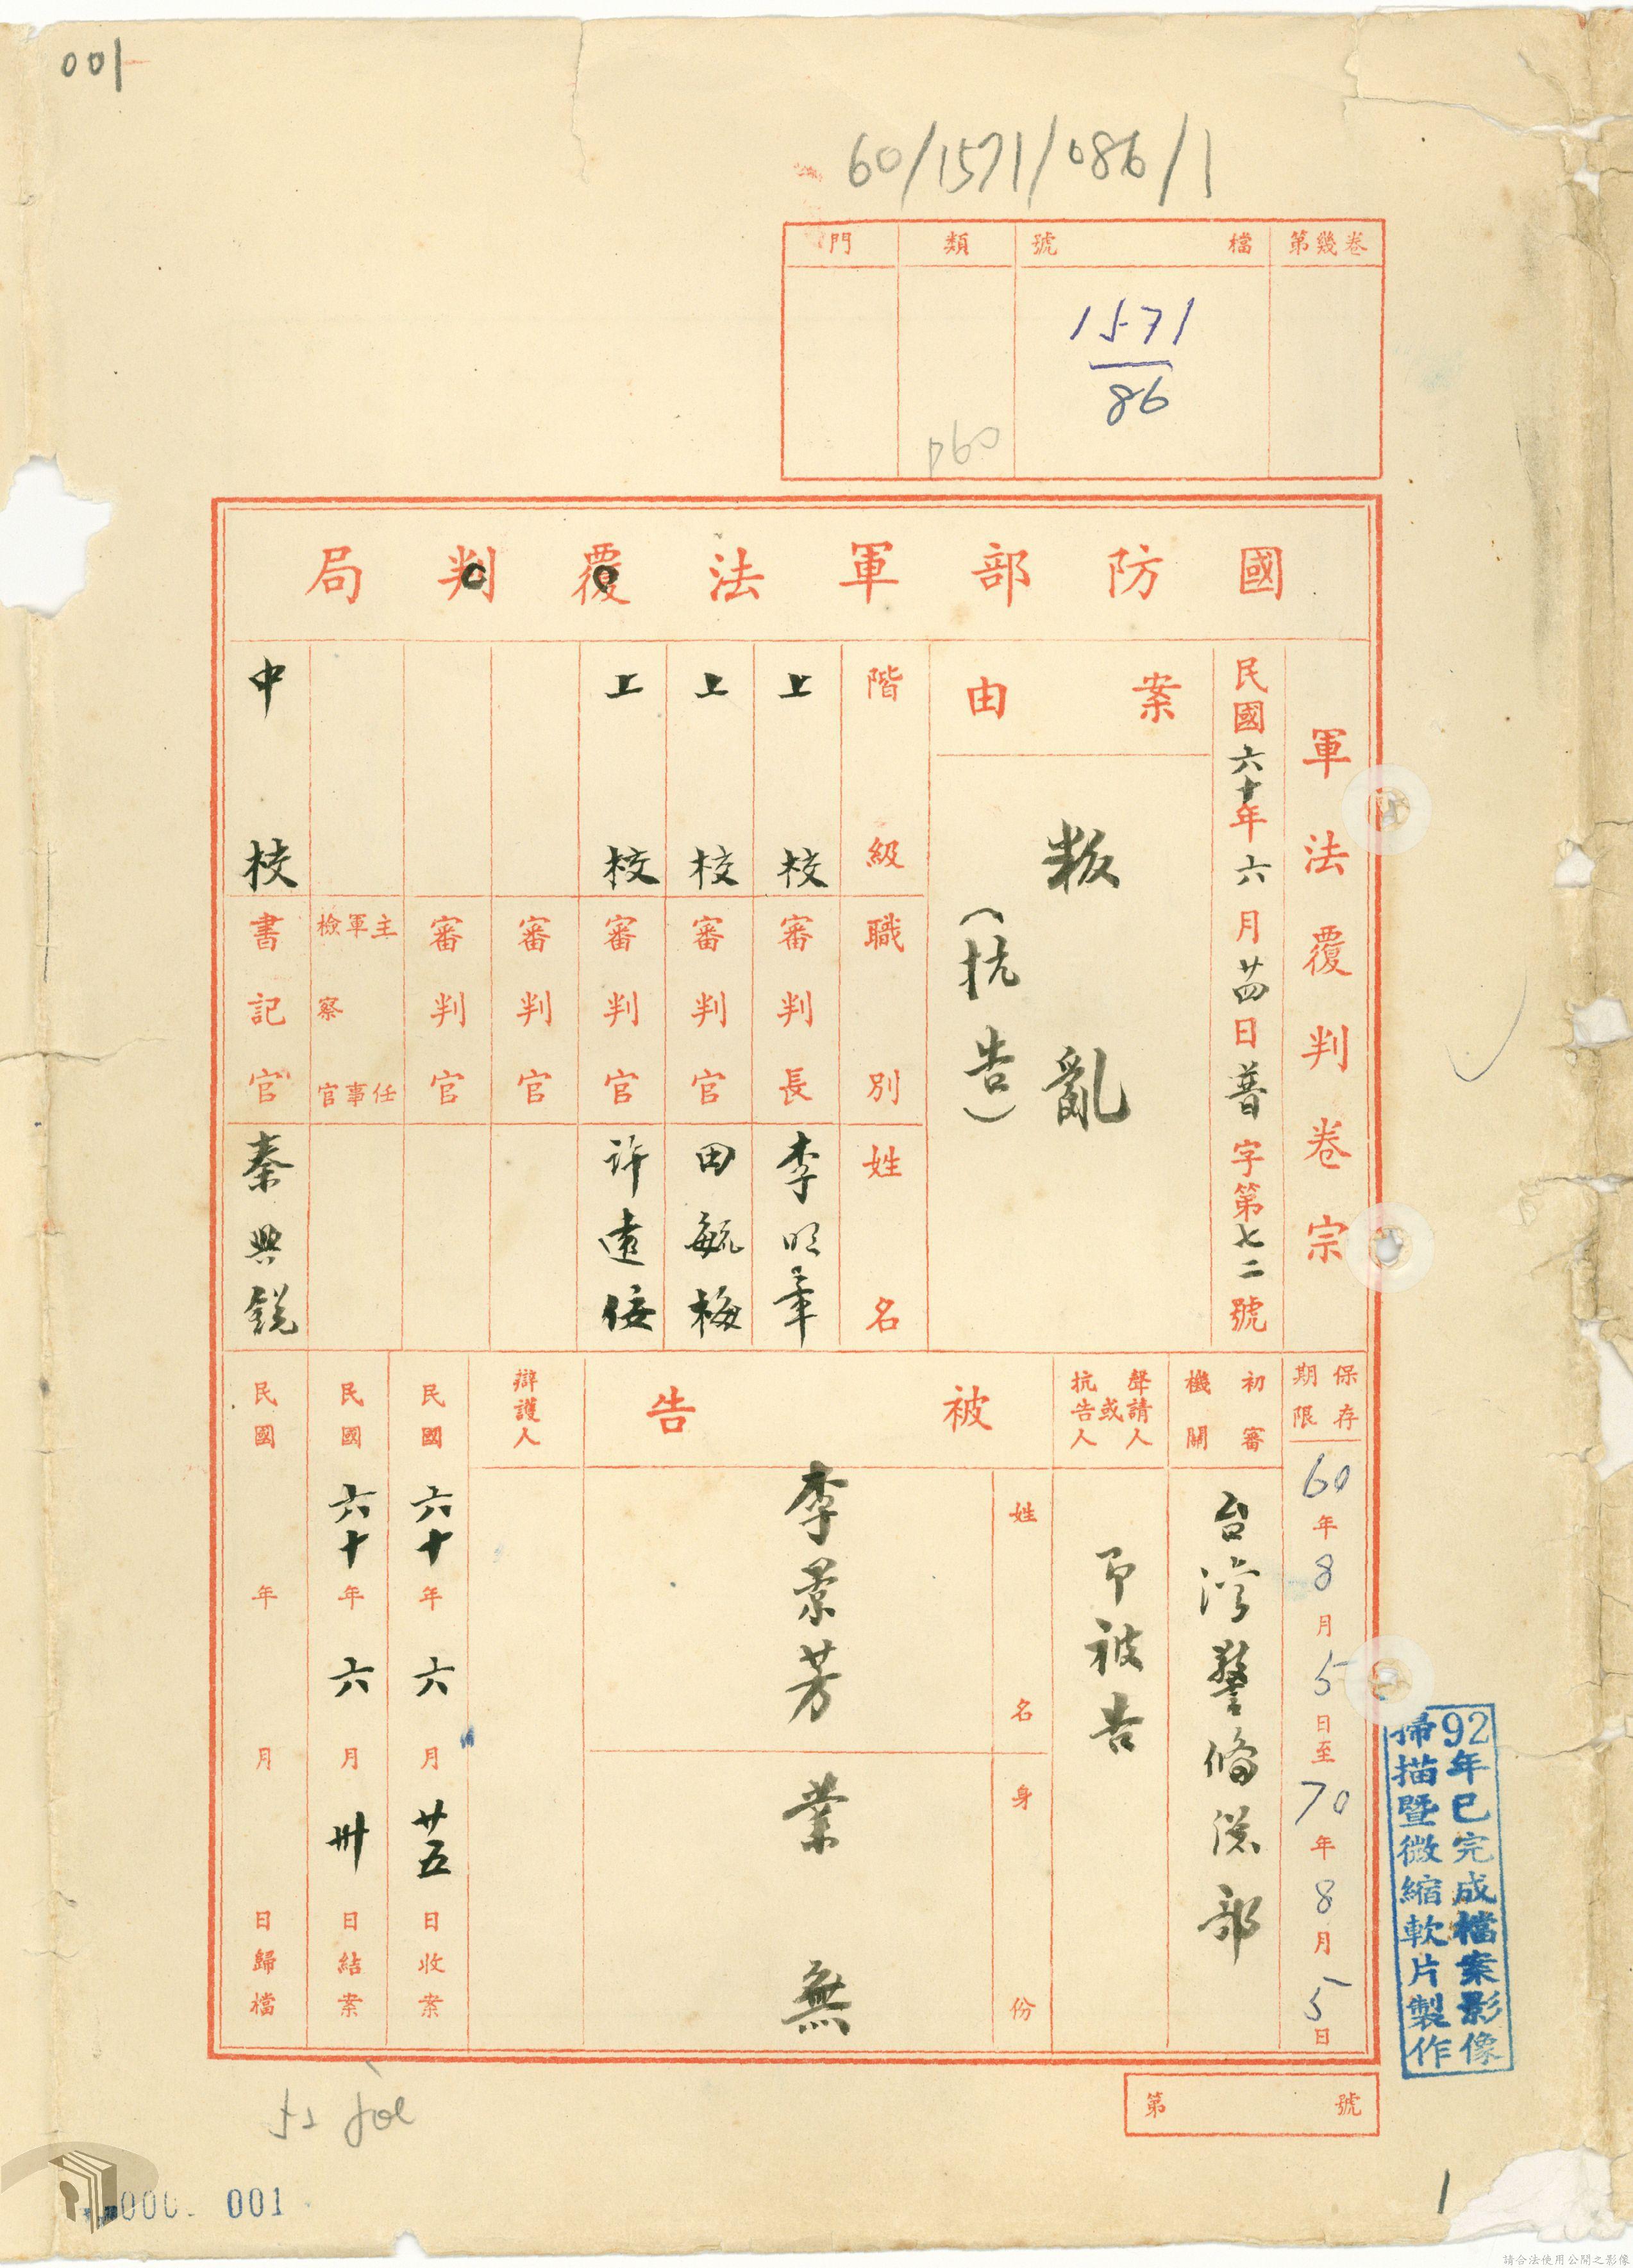 001
60/1571/086/1
第幾卷
檔號
類
門
1571
86
P60
國防部軍法覆判局
軍法覆判卷宗
民國六十年六月廿四日普字第七二號
案由
叛亂
（抗告）
階級 職別 姓名
上校 審判長 李明章
上校 審判官 田毓梅
上校 審判官 許遠俀
審判官
審判官
主任軍事檢察官
中校 書記官 秦興銳
保存期限
60年8月5日至70年8月5日
初審機關
台灣警備總部
聲請人或抗告人
即被告
被告
姓名
李景芳
身份
業無
辯護人
民國六十年六月廿五日收案
民國六十年六月卅日結案
民國 年 月 日歸檔
92年已完成檔案影像
掃描暨微縮軟片製作
第 號
1
001
請合法使用公開之影像